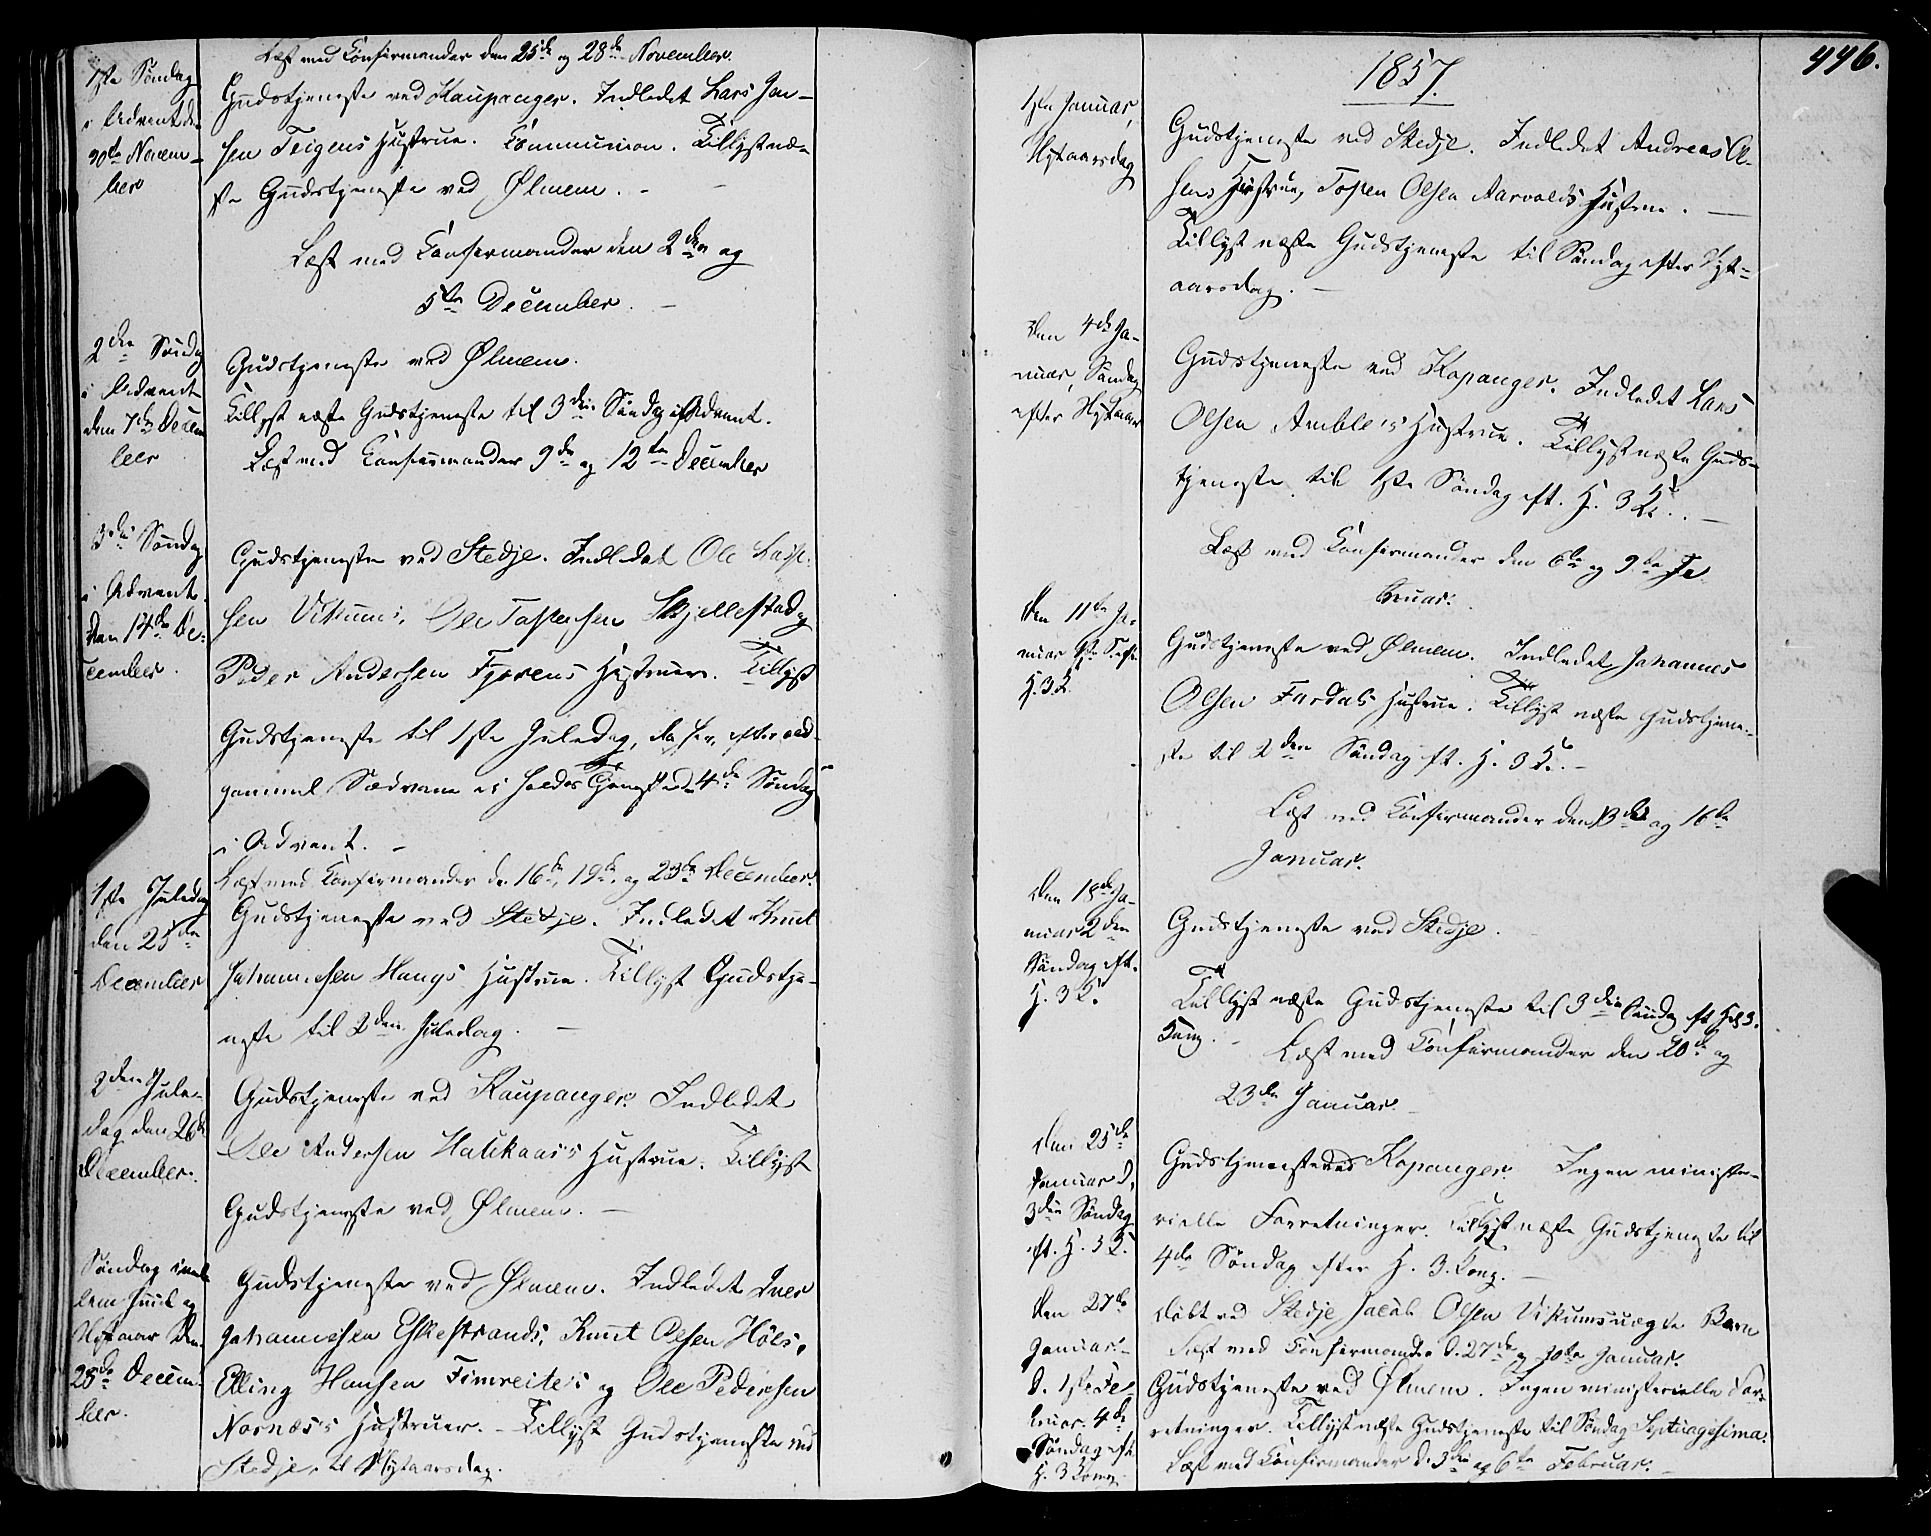 Læst med Confirmander den 25de og 28de November.
1ste Søndag
i Advent den
30te Novem-
ber
Gudstjeneste ved Kaupanger. Indledet Lars Jen-
sen Teigens Hustrue. Communion. Tillyst næ-
ste Gudstjeneste ved Ølmem. -
Læst med Confirmander den 2den og
5te December. -
2den Søndag
i Advent
den 7de Decem
ber
Gudstjeneste ved Ølmem.
Tillyst næste Gudstjeneste til 3die Søndag i Advent.
Læst med Confirmander 9de og 12te December
3die Søndag
i Advent.
den 14de De-
cember.
Gudstjeneste ved Stedje. Indledet Ole
sen Vikums, Ole Tostensen Skjellestad og
Peder Andersen Fjærens Hustruer. Tillyst
Gudstjeneste til 1ste Juledag, da her, efter eld-
gammel Sædvane ei holdes Tjeneste den 4de Søndag
i Advent. -
Læst med Confirmander d. 16de, 19de og 23de December.
1ste Juledag
den 25de
December
Gudstjeneste ved Stedje. Indledet Knut
Johannesen Haugs Hustrue. Tillyst Gudstje-
neste til 2den Juledag. -
2den Jule-
dag den 26de
December.
Gudstjeneste ved Kaupanger. Indledet
Ole Andersen Hustrue. Tillyst
Gudstjeneste ved Ølmem. -
Søndag imel-
lem Juul og
Nytaar den
28de Decem-
ber.
Gudstjeneste ved Ølmem. Indledet Iver
Johannesen Eskestrands, Knut Olsen Høls,
Elling Hansen Fimreites og Ole Pedersen
Nornæs's Hustruer. - Tillyst Gudstjeneste ved
Stedje til Nytaarsdag.
446.
1857.
1ste Januar,
Nytaarsdag
Gudstjeneste ved Stedje. Indledet Andreas Ol-
sens Hustrue, Tosten Olsen Aarvolds Hustrue. -
Tillyst næste Gudstjeneste til Søndag efter Nyt-
aarsdag. -
Den 4de Ja-
nuar, Søndag
efter Nytaar
Gudstjeneste ved Kopanger. Indledet Lars
Olsen Amble's Hustrue. Tillyst næste Guds-
tjeneste til 1ste Søndag eft. H. 3 K. -
Læst med Confirmander den 6te og 9de Ja
nuar.
Den 11te Ja-
nuar 1ste S. eft.
H. 3 K.
Gudstjeneste ved Ølmem. Indledet Johannes
Olsen Fardals Hustrue. Tillyst næste Gudstjene-
ste til 2den Søndag eft. H. 3 K. -
Læst med Confirmander den 13de og 16de
Januar.
Den 18de Ja-
nuar 2den
Søndag eft.
H. 3 K.
Gudstjeneste ved Stedje.
Tillyst næste Gudstjeneste til 3die Søndag eft. Hel. 3.
Kong. -
Læst med Confirmander den 20de og
23de Januar.
Den 25de
Januar d.
3die Søndag
eft. H. 3 K.
Gudstjeneste ved Kopanger. Ingen ministe-
rielle Forretninger. Tillyst næste Gudstjeneste til
4de Søndag efter H. 3. Kong. -
Den 27de
Januar.
Døbt ved Stedje Jacob Olsen Vikums uægte Barn
Læst med Confirmander d. 27de og 30te Januar.
D. 1ste Fe-
bruar. 4de
Søndag eft.
H. 3 Kong.
Gudstjeneste ved Ølmem. Ingen ministerielle For-
retninger. Tillyst næste Gudstjeneste til Søndag Septuagesima.
Læst med Confirmander d. 3die og 6te Februar. -